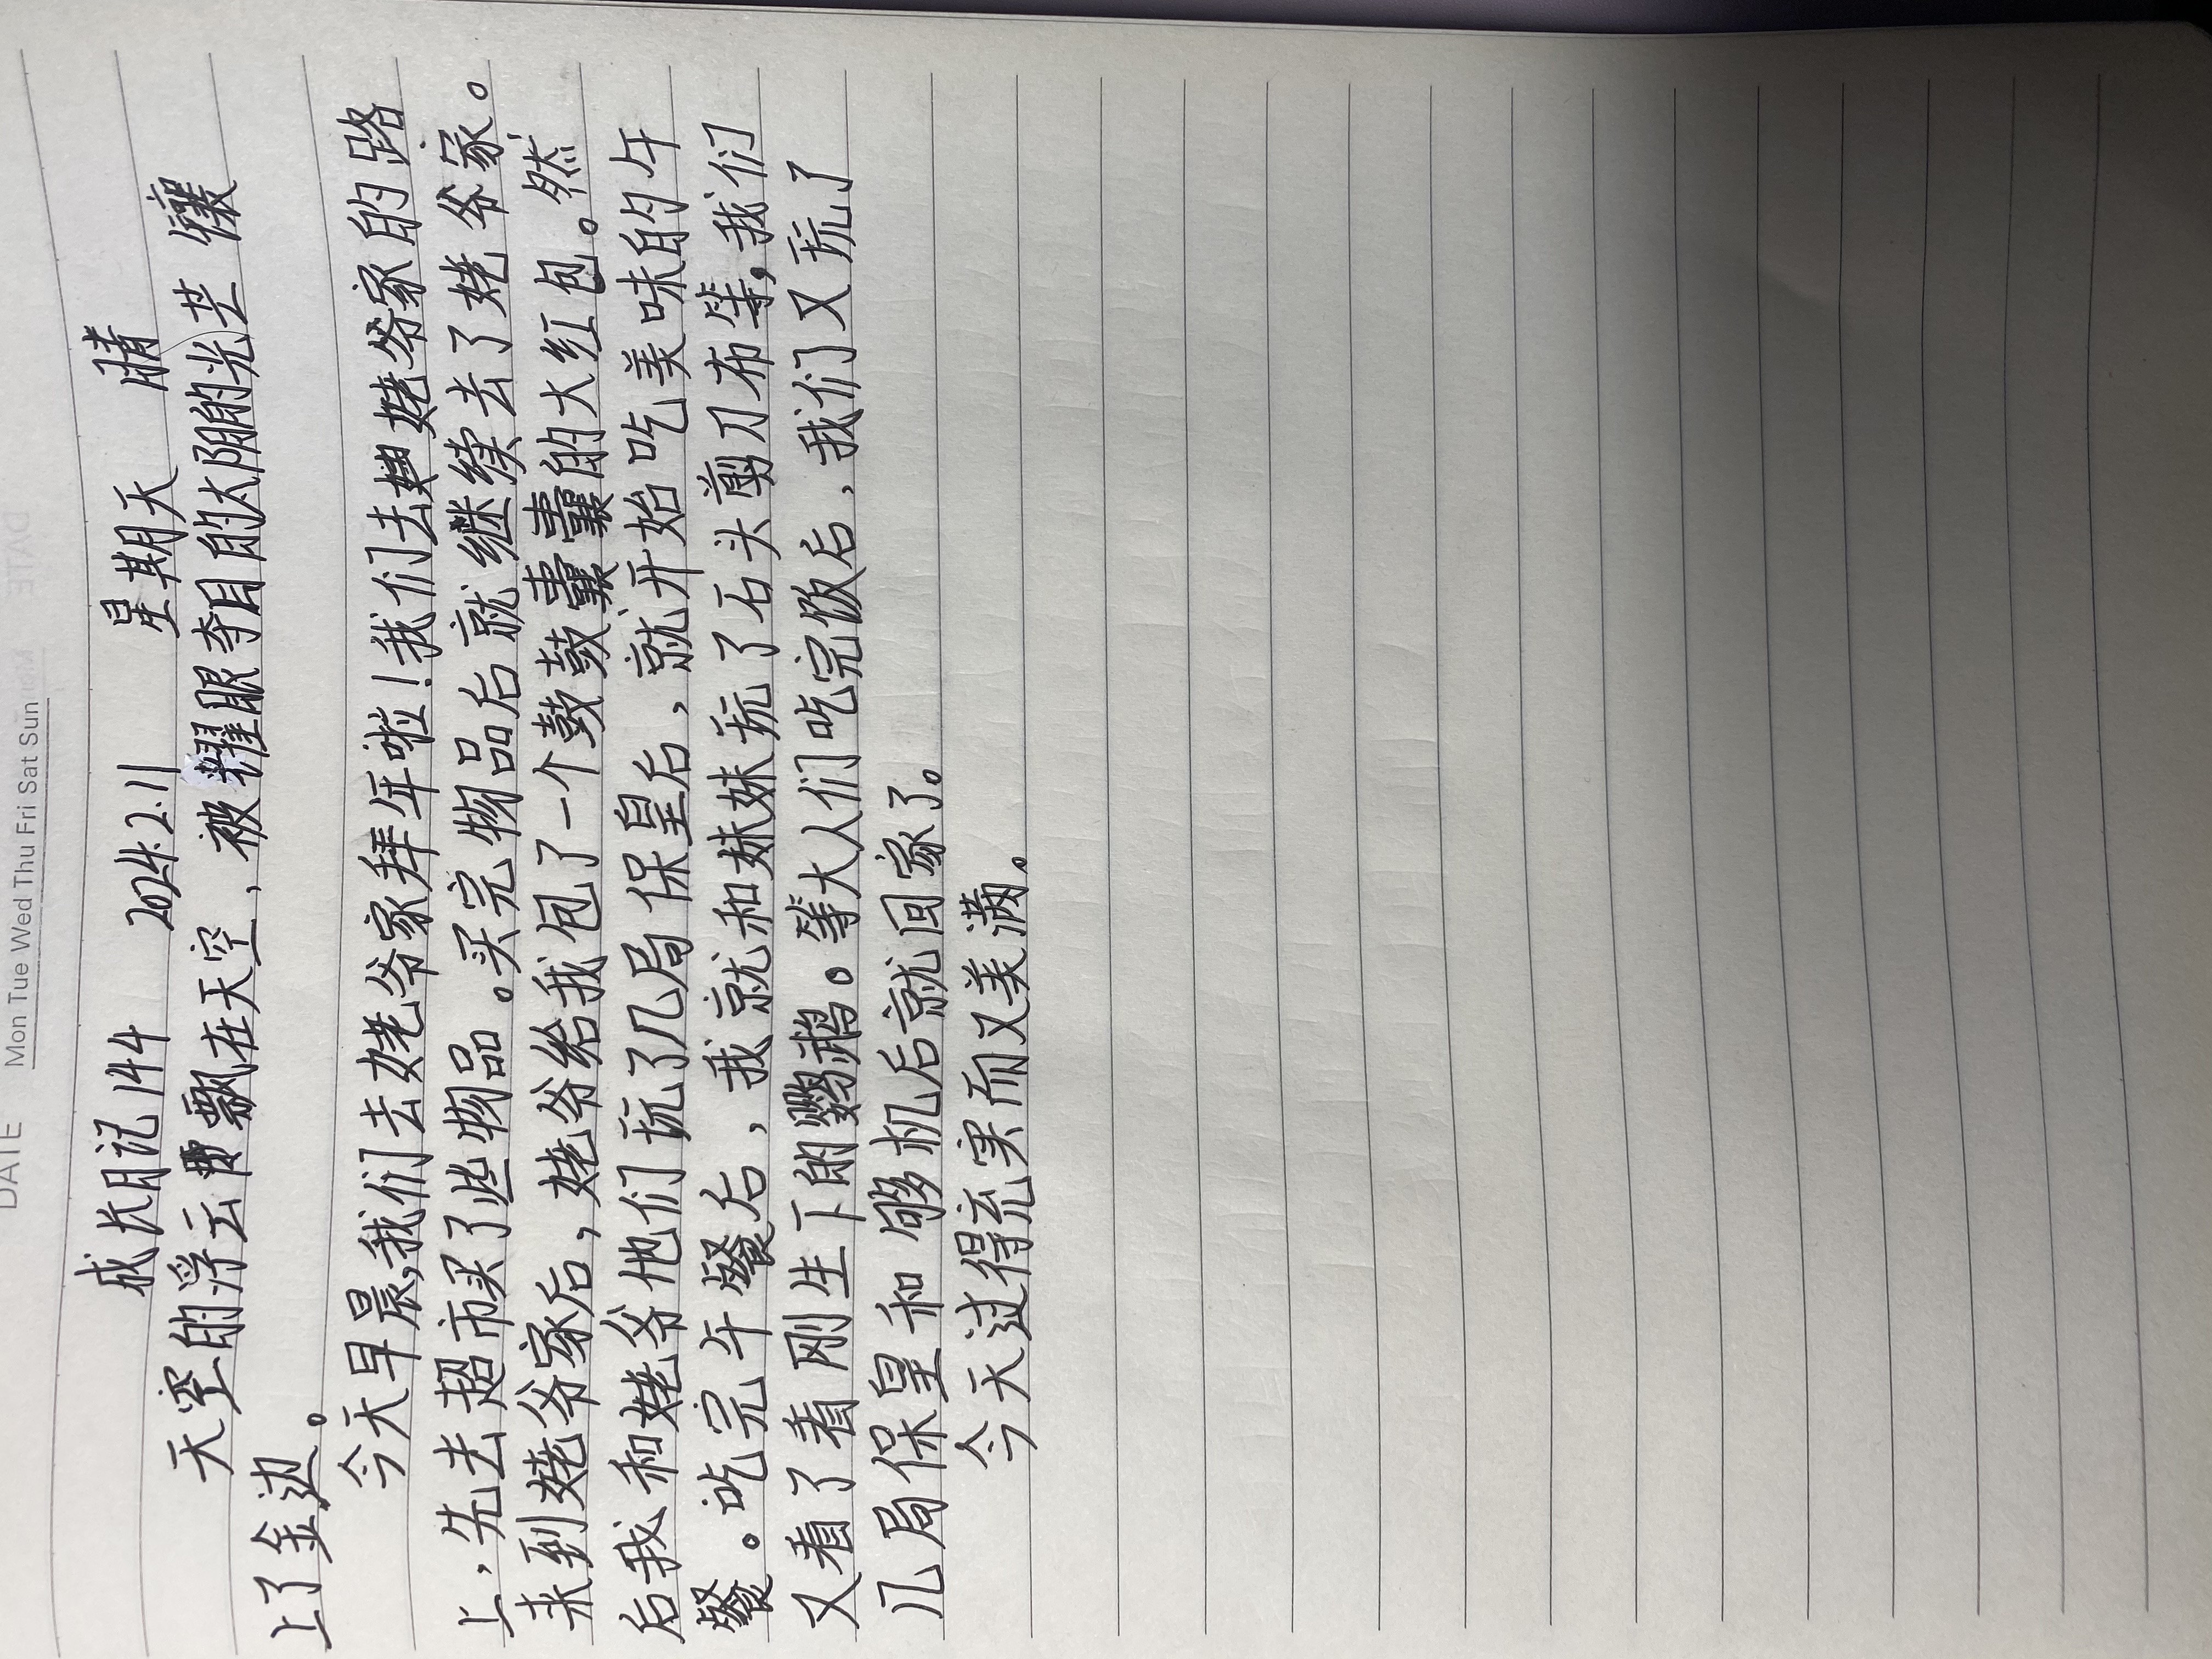 DATE Mon Tue Wed Thu Fri Sat Sun
成长日记144 2024.2.11 星期天 晴
天空的浮云飘在天空，被耀眼夺目的太阳的光芒镶
上了金边。
今天早晨，我们去姥爷家拜年啦！我们去姥爷家的路
上，先去超市买了些物品。买完物品后就继续去了姥爷家。
来到姥爷家后，姥爷给我包了一个鼓鼓囊囊的大红包。然
后我和姥爷他们玩了几局保皇后，就开始吃美味的午
餐。吃完午餐后，我就和妹妹玩了石头剪刀布等，我们
又看了看刚生下的鹦鹉。等大人们吃完饭后，我们又玩了
几局保皇和够机后就回家了。
今天过得充实而又美满。